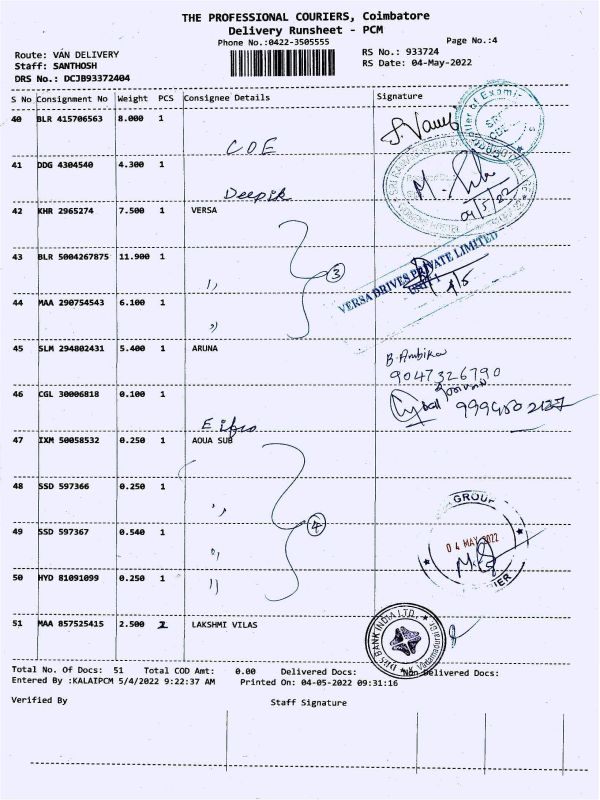 THE PROFESSIONAL COURIERS, Coimbatore
Delivery Runsheet - PCM
Phone No.:0422-3505555
Page No.:4
Route: VAN DELIVERY
RS No.: 933724
Staff: SANTHOSH
RS Date: 04-May-2022
DRS No.: DCJB93372404
S No Consignment No Weight PCS Consignee Details Signature
40 BLR 415706563 8.000 1
COE
41 DDG 4304540 4.300 1
Deepik
04/5/22
42 KHR 2965274 7.500 1 VERSA
43 BLR 5004267875 11.900 1
3
VERSA DRIVES PRIVATE LIMITED
UNIT 1
4/5
44 MAA 290754543 6.100 1
45 SLM 294802431 5.400 1 ARUNA
B. Ambika
9047326790
46 CGL 30006818 0.100 1
47 IXM 50058532 0.250 1 AOUA SUB
48 SSD 597366 0.250 1
4
49 SSD 597367 0.540 1
GROUP
04 MAY 2022
50 HYD 81091099 0.250 1
51 MAA 857525415 2.500 2 LAKSHMI VILAS
BANK INDIA LTD.
Total No. Of Docs: 51 Total COD Amt: 0.00 Delivered Docs: Non Delivered Docs:
Entered By :KALAIPCM 5/4/2022 9:22:37 AM Printed On: 04-05-2022 09:31:16
Verified By Staff Signature